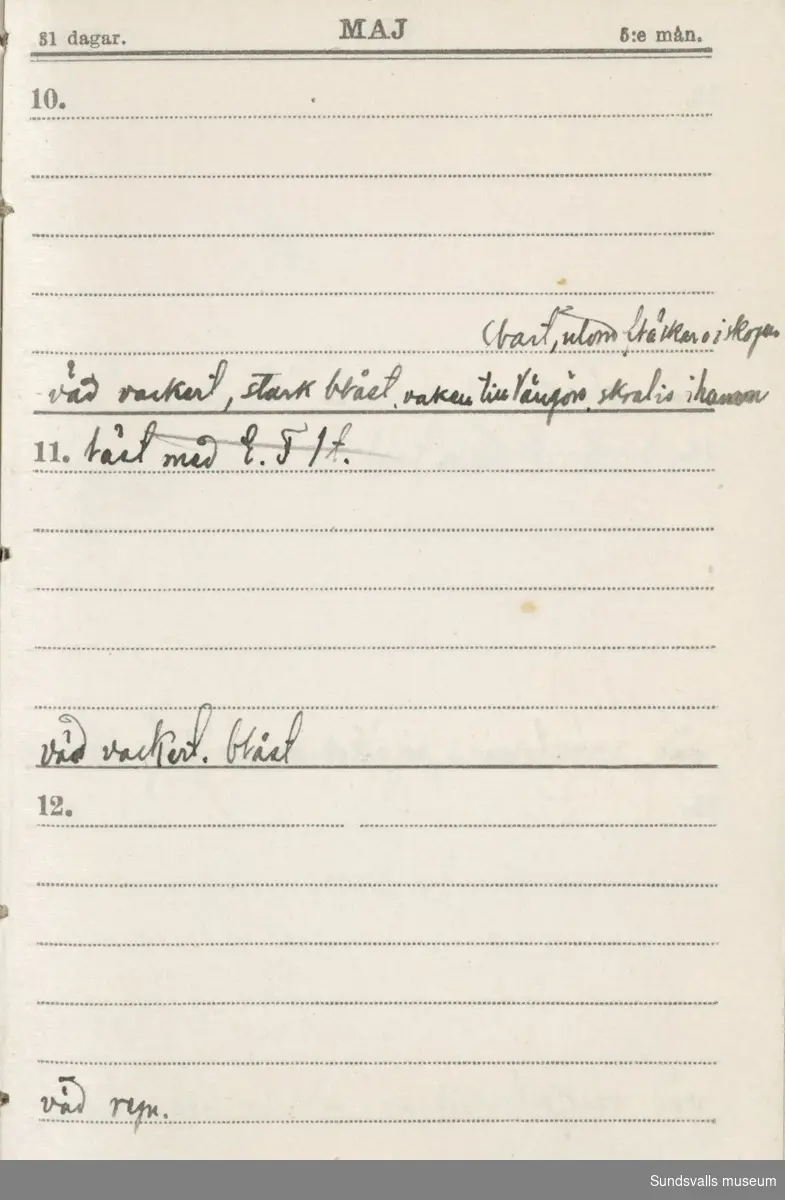 31 dagar. MAJ 5:e mån.
10.
(bart, utom
väd vackert, stark blåst, vaken till Vängön, skralis i hamn
11. läst med E. F
väd vackert. blåst
12.
väd regn.
Sundsvalls museum